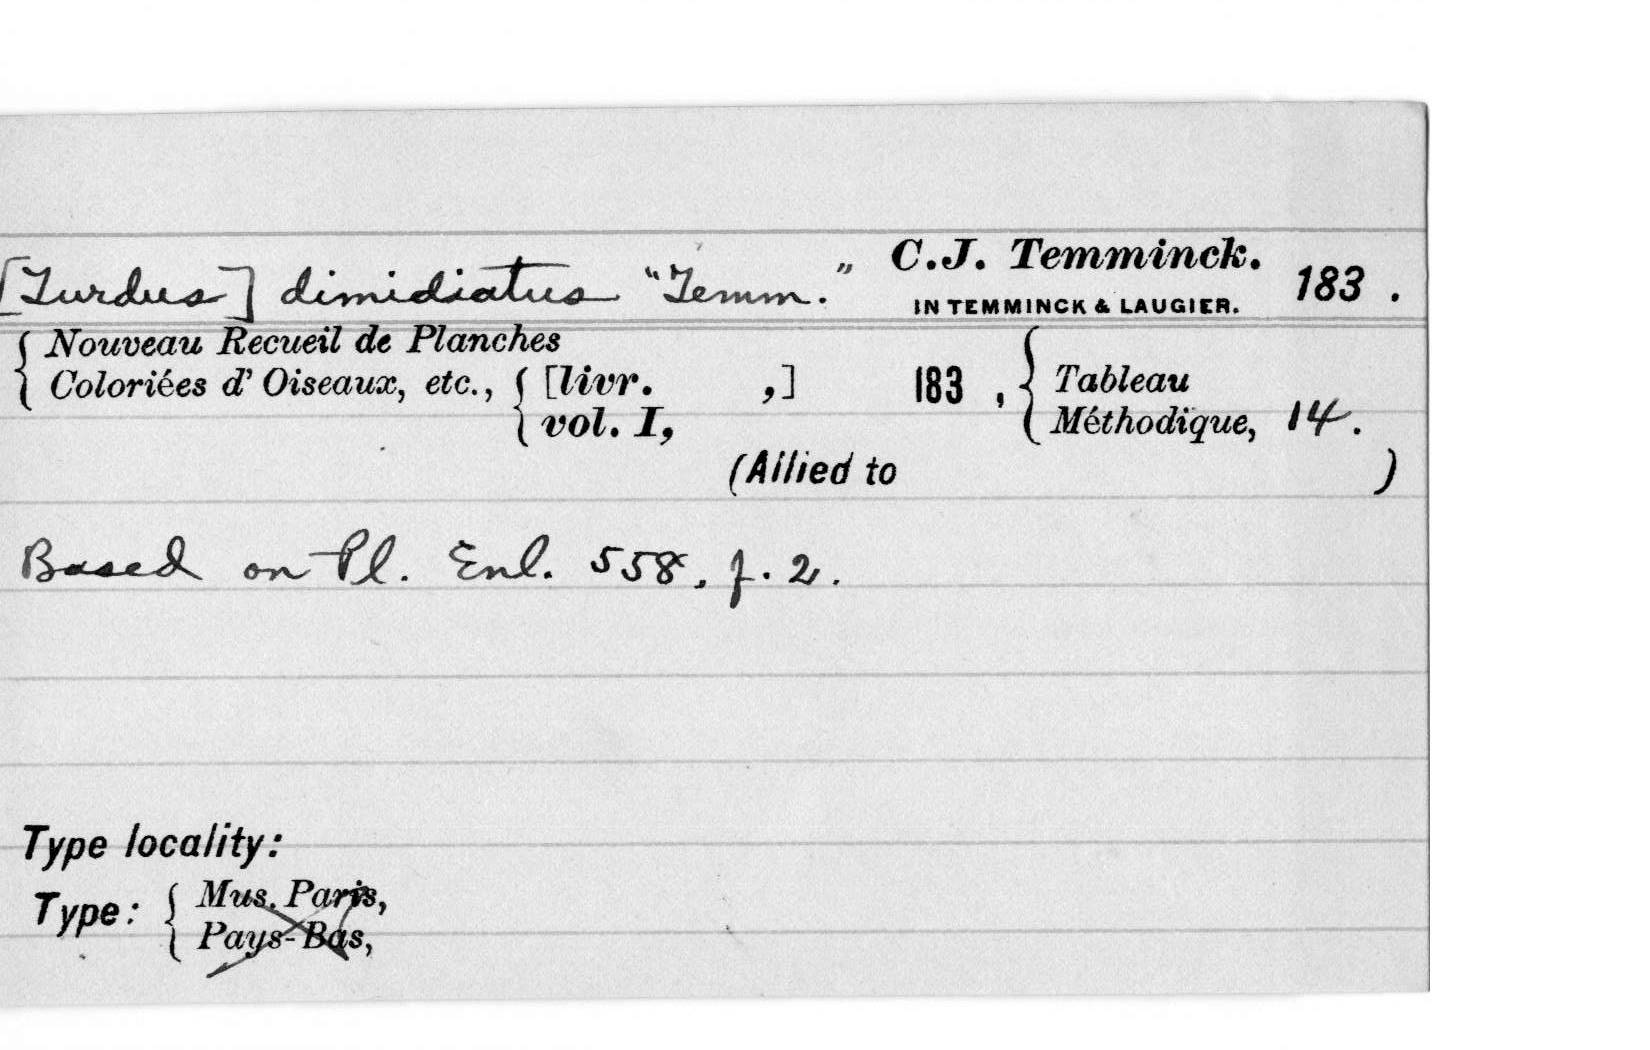 [Turdus] dimidiatus "Temm." C.J. Temminck. 183 .
IN TEMMINCK & LAUGIER.
Nouveau Recueil de Planches
Coloriées d' Oiseaux, etc., [livr. ,] 183 , Tableau
vol. I, Méthodique, 14.
(Allied to )
Based on Pl. Enl. 558, f. 2.
Type locality:
Type: Mus. Paris,
Pays-Bas,